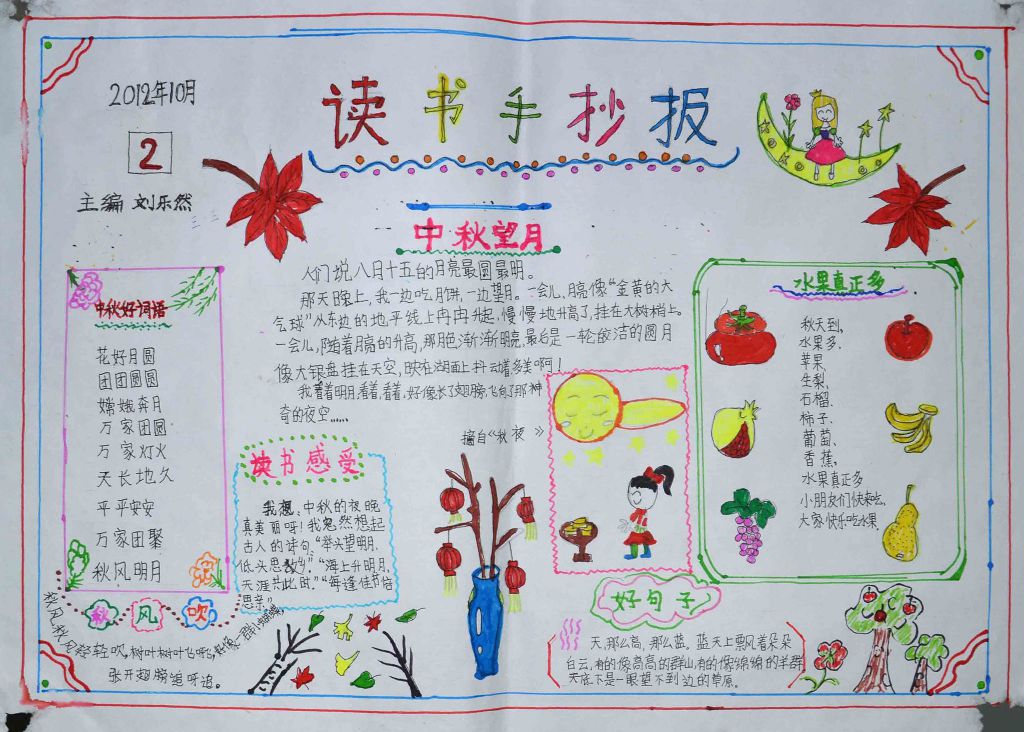 2012年10月
2
主编 刘乐然
读书手抄报
中秋望月
人们说八月十五的月亮最圆最明。
那天晚上,我一边吃月饼,一边望月。一会儿,月亮像“金黄的大
气球”从东边的地平线上冉冉升起,慢慢地升高了,挂在大树梢上。
一会儿,随着月亮的升高,那月色渐渐明亮,最后是一轮皎洁的圆月
像大银盘挂在天空,映在湖面上抖动着多美啊!
我看着明月,看着,看着,好像长了翅膀,飞向了那神
奇的夜空……
摘自《秋夜》
中秋好词语
花好月圆
团团圆圆
嫦娥奔月
万家团圆
万家灯火
天长地久
平平安安
万家团聚
秋风明月
读书感受
我想,中秋的夜晚
真美丽呀!我忽然想起
古人的诗句:“举头望明月,
低头思故乡”“海上升明月,
天涯共此时。”“每逢佳节倍
思亲”
水果真正多
秋天到,
水果多.
苹果
生梨、
石榴、
柿子、
葡萄、
香蕉,
水果真正多
小朋友们快来吃,
大家快乐吃水果.
秋风吹
秋风秋风轻轻吹,树叶树叶飞呀飞,
张开翅膀追呀追。
好句子
天,那么高,那么蓝。蓝天上飘风着朵朵
白云,有的像高高的群山,有的像绵绵的羊群
天底下是一眼望不到边的草原。